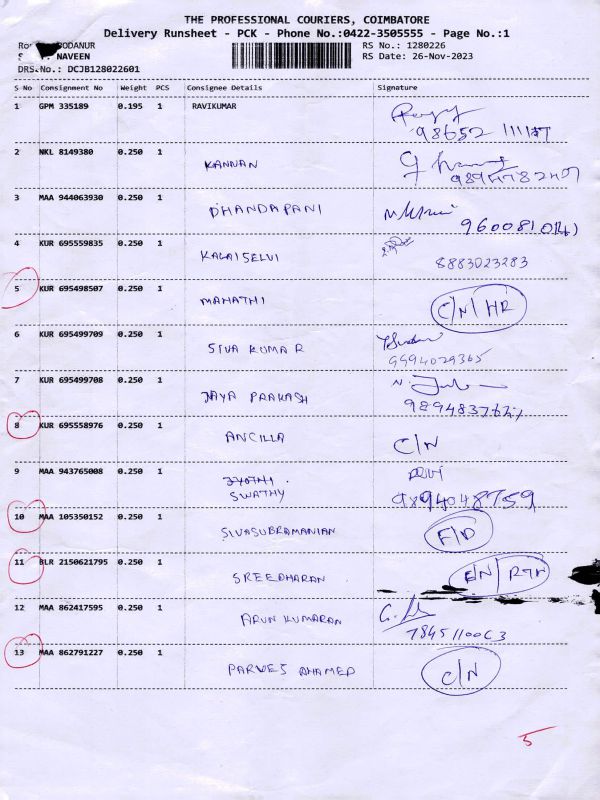 THE PROFESSIONAL COURIERS, COIMBATORE
Delivery Runsheet - PCK - Phone No.:0422-3505555 - Page No.:1
PODANUR RS No.: 1280226
NAVEEN RS Date: 26-Nov-2023
DRS.No.: DCJB128022601
S No Consignment No Weight PCS Consignee Details Signature
1 GPM 335189 0.195 1 RAVIKUMAR
98652
2 NKL 8149380 0.250 1 KANNAN
3 MAA 944063930 0.250 1 DHANDAPANI
4 KUR 695559835 0.250 1 KALAISELVI
8883023283
5 KUR 695498507 0.250 1 MAHATHI C/N/HR
6 KUR 695499709 0.250 1 SIVA KUMAR
9994029365
7 KUR 695499708 0.250 1 JAYA PRAKASH
8 KUR 695558976 0.250 1 ANCILLA C/N
9 MAA 943765008 0.250 1 JYOTHI.
SWATHY
9894048759
10 MAA 105350152 0.250 1 SIVASUBRAMANIAN F/D
11 BLR 2150621795 0.250 1 SREEDHARAN
12 MAA 862417595 0.250 1 ARUN KUMARAN
13 MAA 862791227 0.250 1 PARVES AHAMED C/N
5